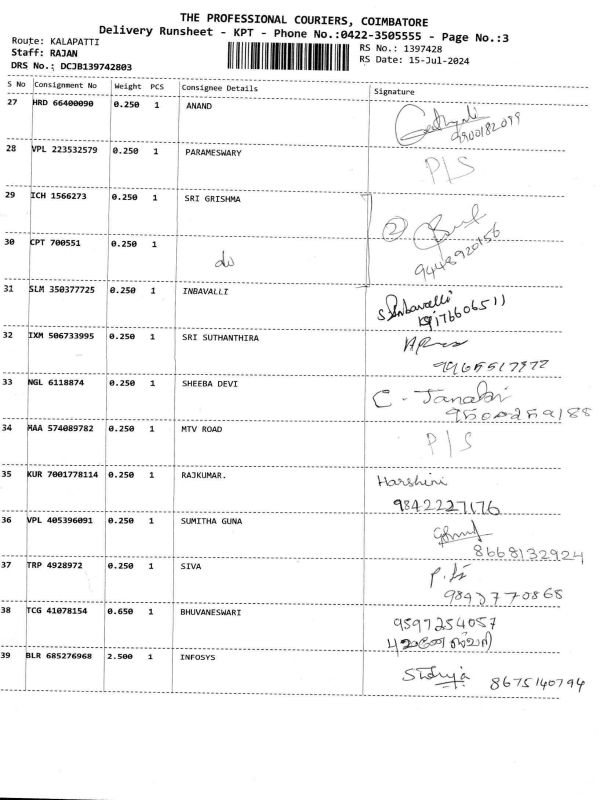 THE PROFESSIONAL COURIERS, COIMBATORE
Delivery Runsheet - KPT - Phone No.:0422-3505555 - Page No.:3
Route: KALAPATTI
RS No.: 1397428
Staff: RAJAN
RS Date: 15-Jul-2024
DRS No.: DCJB139742803
S No Consignment No Weight PCS Consignee Details Signature
27 HRD 66400090 0.250 1 ANAND
9900182099
28 VPL 223532579 0.250 1 PARAMESWARY
P/S
29 ICH 1566273 0.250 1 SRI GRISHMA
2
30 CPT 700551 0.250 1
do
9448920756
31 SLM 350377725 0.250 1 INBAVALLI
S. Inbavalli
32 IXM 506733995 0.250 1 SRI SUTHANTHIRA
33 NGL 6118874 0.250 1 SHEEBA DEVI
C. Janaki
9500259188
34 MAA 574089782 0.250 1 MTV ROAD
P/S
35 KUR 7001778114 0.250 1 RAJKUMAR.
Harshini
9842227176
36 VPL 405396091 0.250 1 SUMITHA GUNA
8668132924
37 TRP 4928972 0.250 1 SIVA
9843770868
38 TCG 41078154 0.650 1 BHUVANESWARI
9597254057
புவனேஸ்வரி
39 BLR 685276968 2.500 1 INFOSYS
8675140794